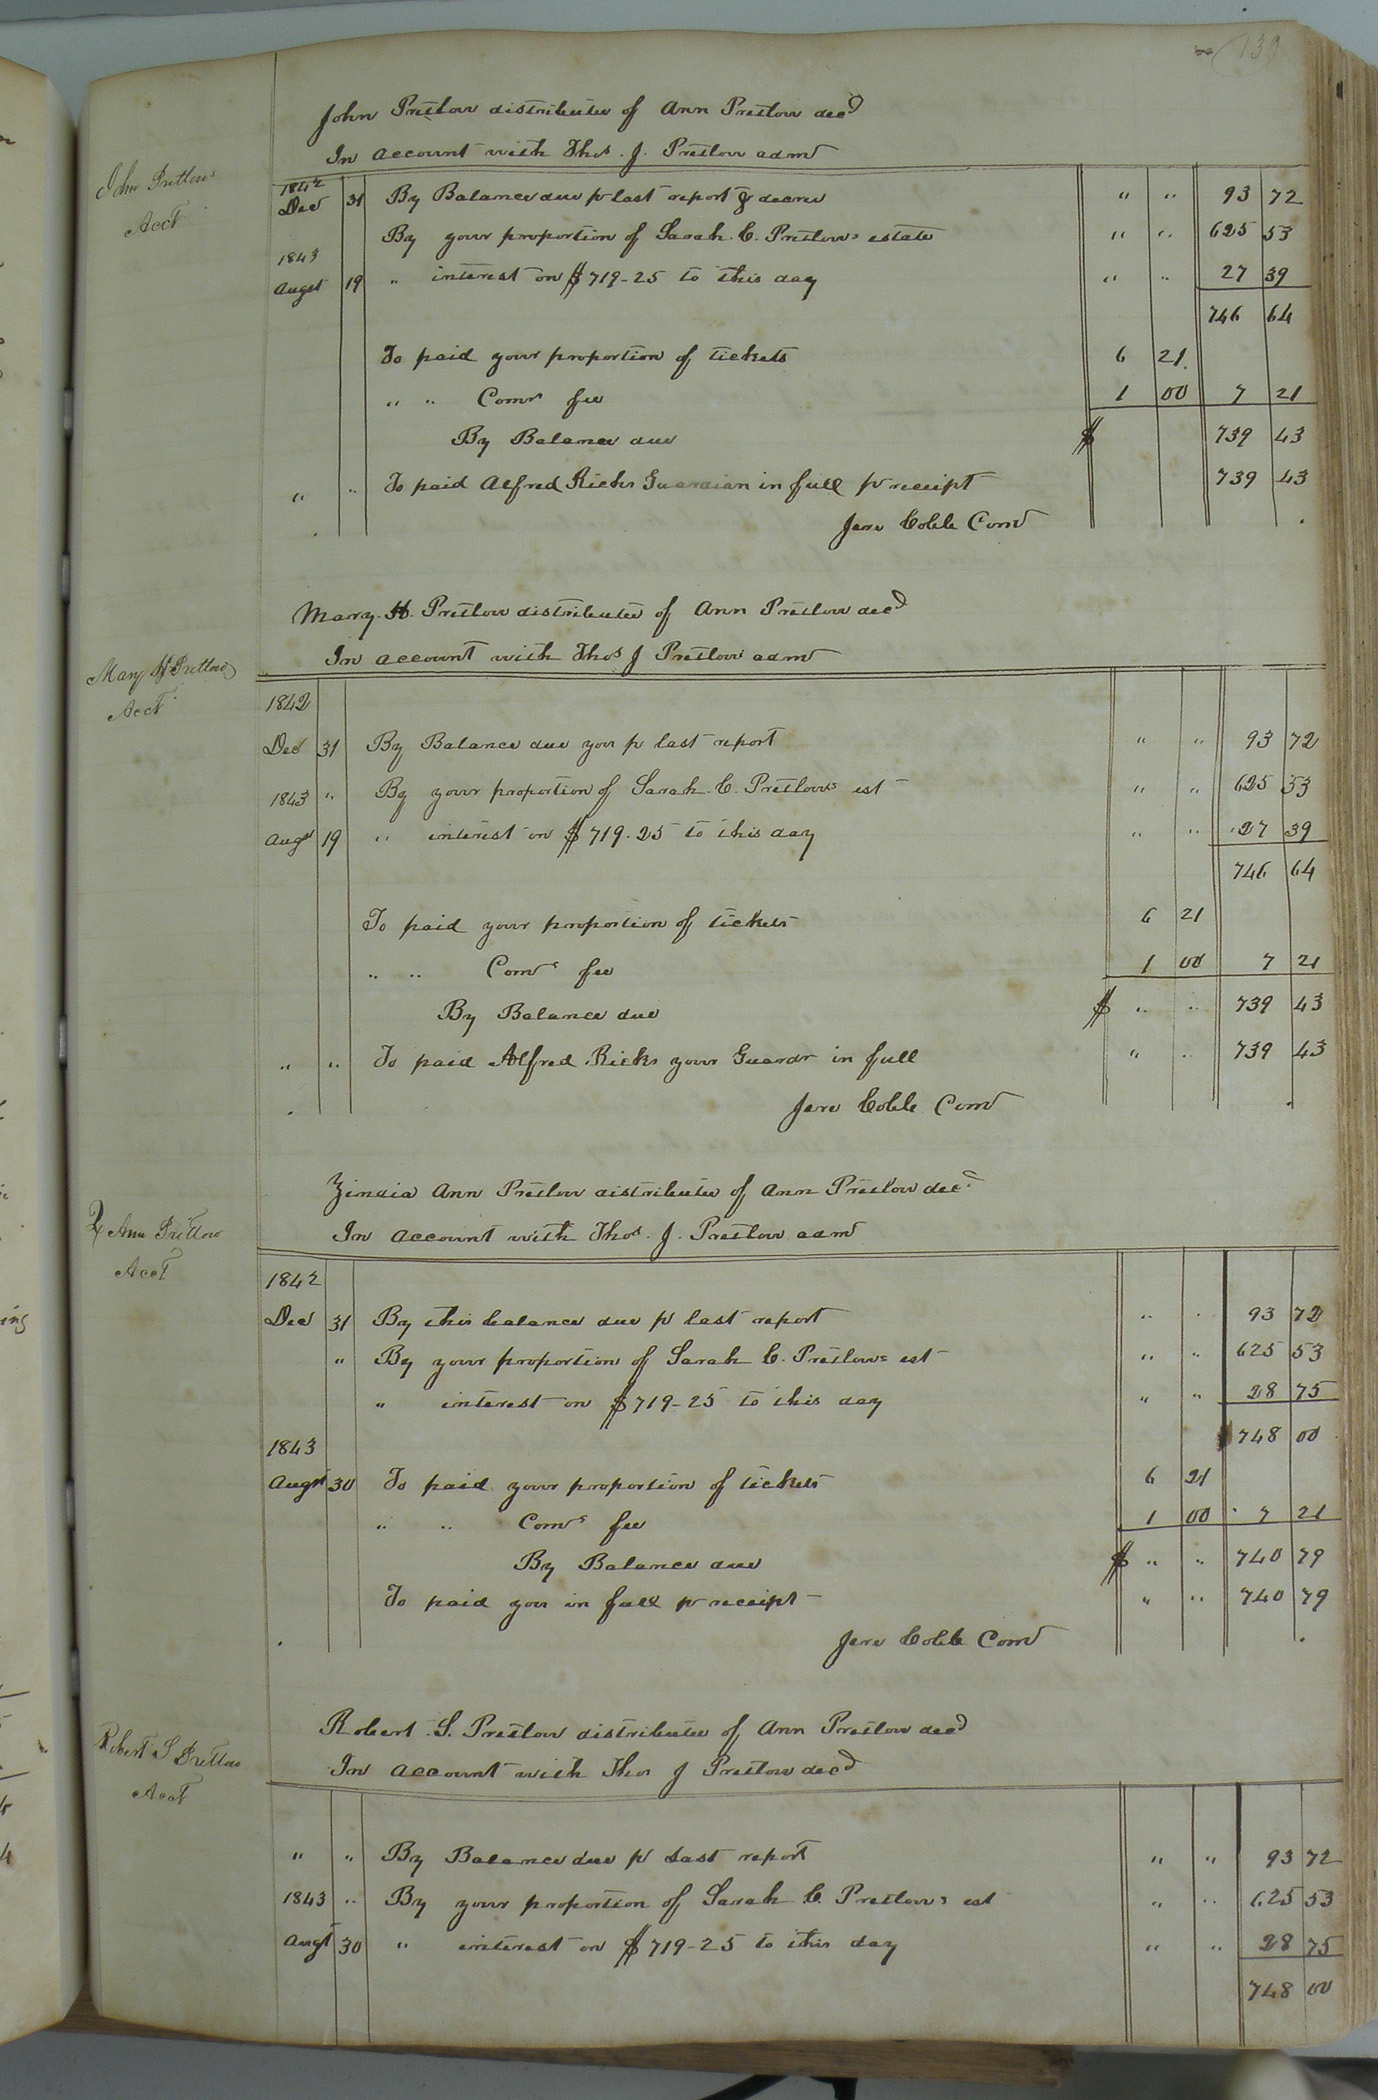 139
John Pretlow distributee of Ann Pretlow decd
In account with Thos. J. Pretlow admr
John Pretlows
Acct
1842
Dec 31 By Balance due pr last report & decree " " 93 72
By your proportion of Sarah. C. Pretlows estate " " 625 53
1843
Augst 19 " interest on $719-25 to this day " " 27 39
746 64
To paid your proportion of tickets 6 21
" " Comrs fee 1 00 7 21
By Balance due $ 739 43
" " To paid Alfred Ricks Guardian in full pr receipt 739 43
Jere Cobb Comr
Mary. H. Pretlow distributee of Ann Pretlow decd
In account with Thos J Pretlow admr
Mary H Pretlow
Acct
1842
Dec 31 By Balance due you pr last report " " 93 72
1843 " By your proportion of Sarah. C. Pretlows est " " 625 53
Augt 19 " interest on $719.25 to this day " " 27 39
746 64
To paid your proportion of tickets 6 21
" " Comrs fee 1 00 7 21
By Balance due $ " " 739 43
" " To paid Alfred Ricks your Guardr in full " " 739 43
Jere Cobb Comr
Ann Pretlow distributee of Ann Pretlow decd
In account with Thos. J. Pretlow admr
Z Ann Pretlow
Acct
1842
Dec 31 By this balance due pr last report " " 93 72
" By your proportion of Sarah C. Pretlows est " " 625 53
" interest on $719-25 to this day " " 28 75
1843
748 00
Augst 30 To paid your proportion of tickets 6 21
" " Comrs fee 1 00 7 21
By Balance due $ " " 740 79
To paid you in full pr receipt " " 740 79
Jere Cobb Comr
Robert. S. Pretlow distributee of Ann Pretlow decd
In account with Thos J Pretlow decd
Robert S Pretlow
Acct
" " By Balance due pr last report " " 93 72
1843 " By your proportion of Sarah C. Pretlows est " " 625 53
Augt 30 " interest on $719-25 to this day " " 28 75
748 00